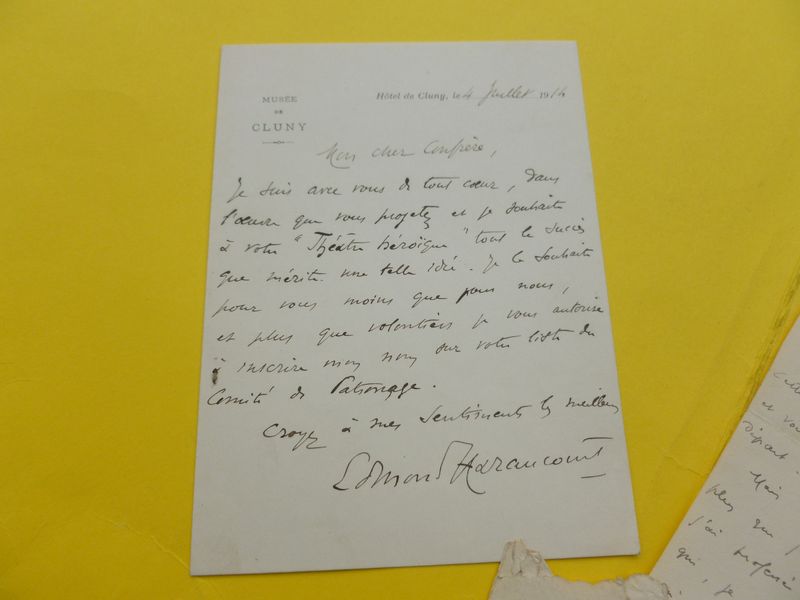 MUSÉE
DE
CLUNY
Hôtel de Cluny, le 4 Juillet 1914
Mon cher Confrère,
Je suis avec vous de tout cœur, dans
l'œuvre que vous projetez et je souhaite
à votre "Théâtre héroïque" tout le succès
que mérite une telle idée. Je le souhaite
pour vous moins que pour nous,
et plus que volontiers je vous autorise
à inscrire mon nom sur votre liste du
Comité de Patronage.
Croyez à mes sentiments les meilleurs
Edmond Haraucourt
et vou
Mais
plus
j'ai
qui, je